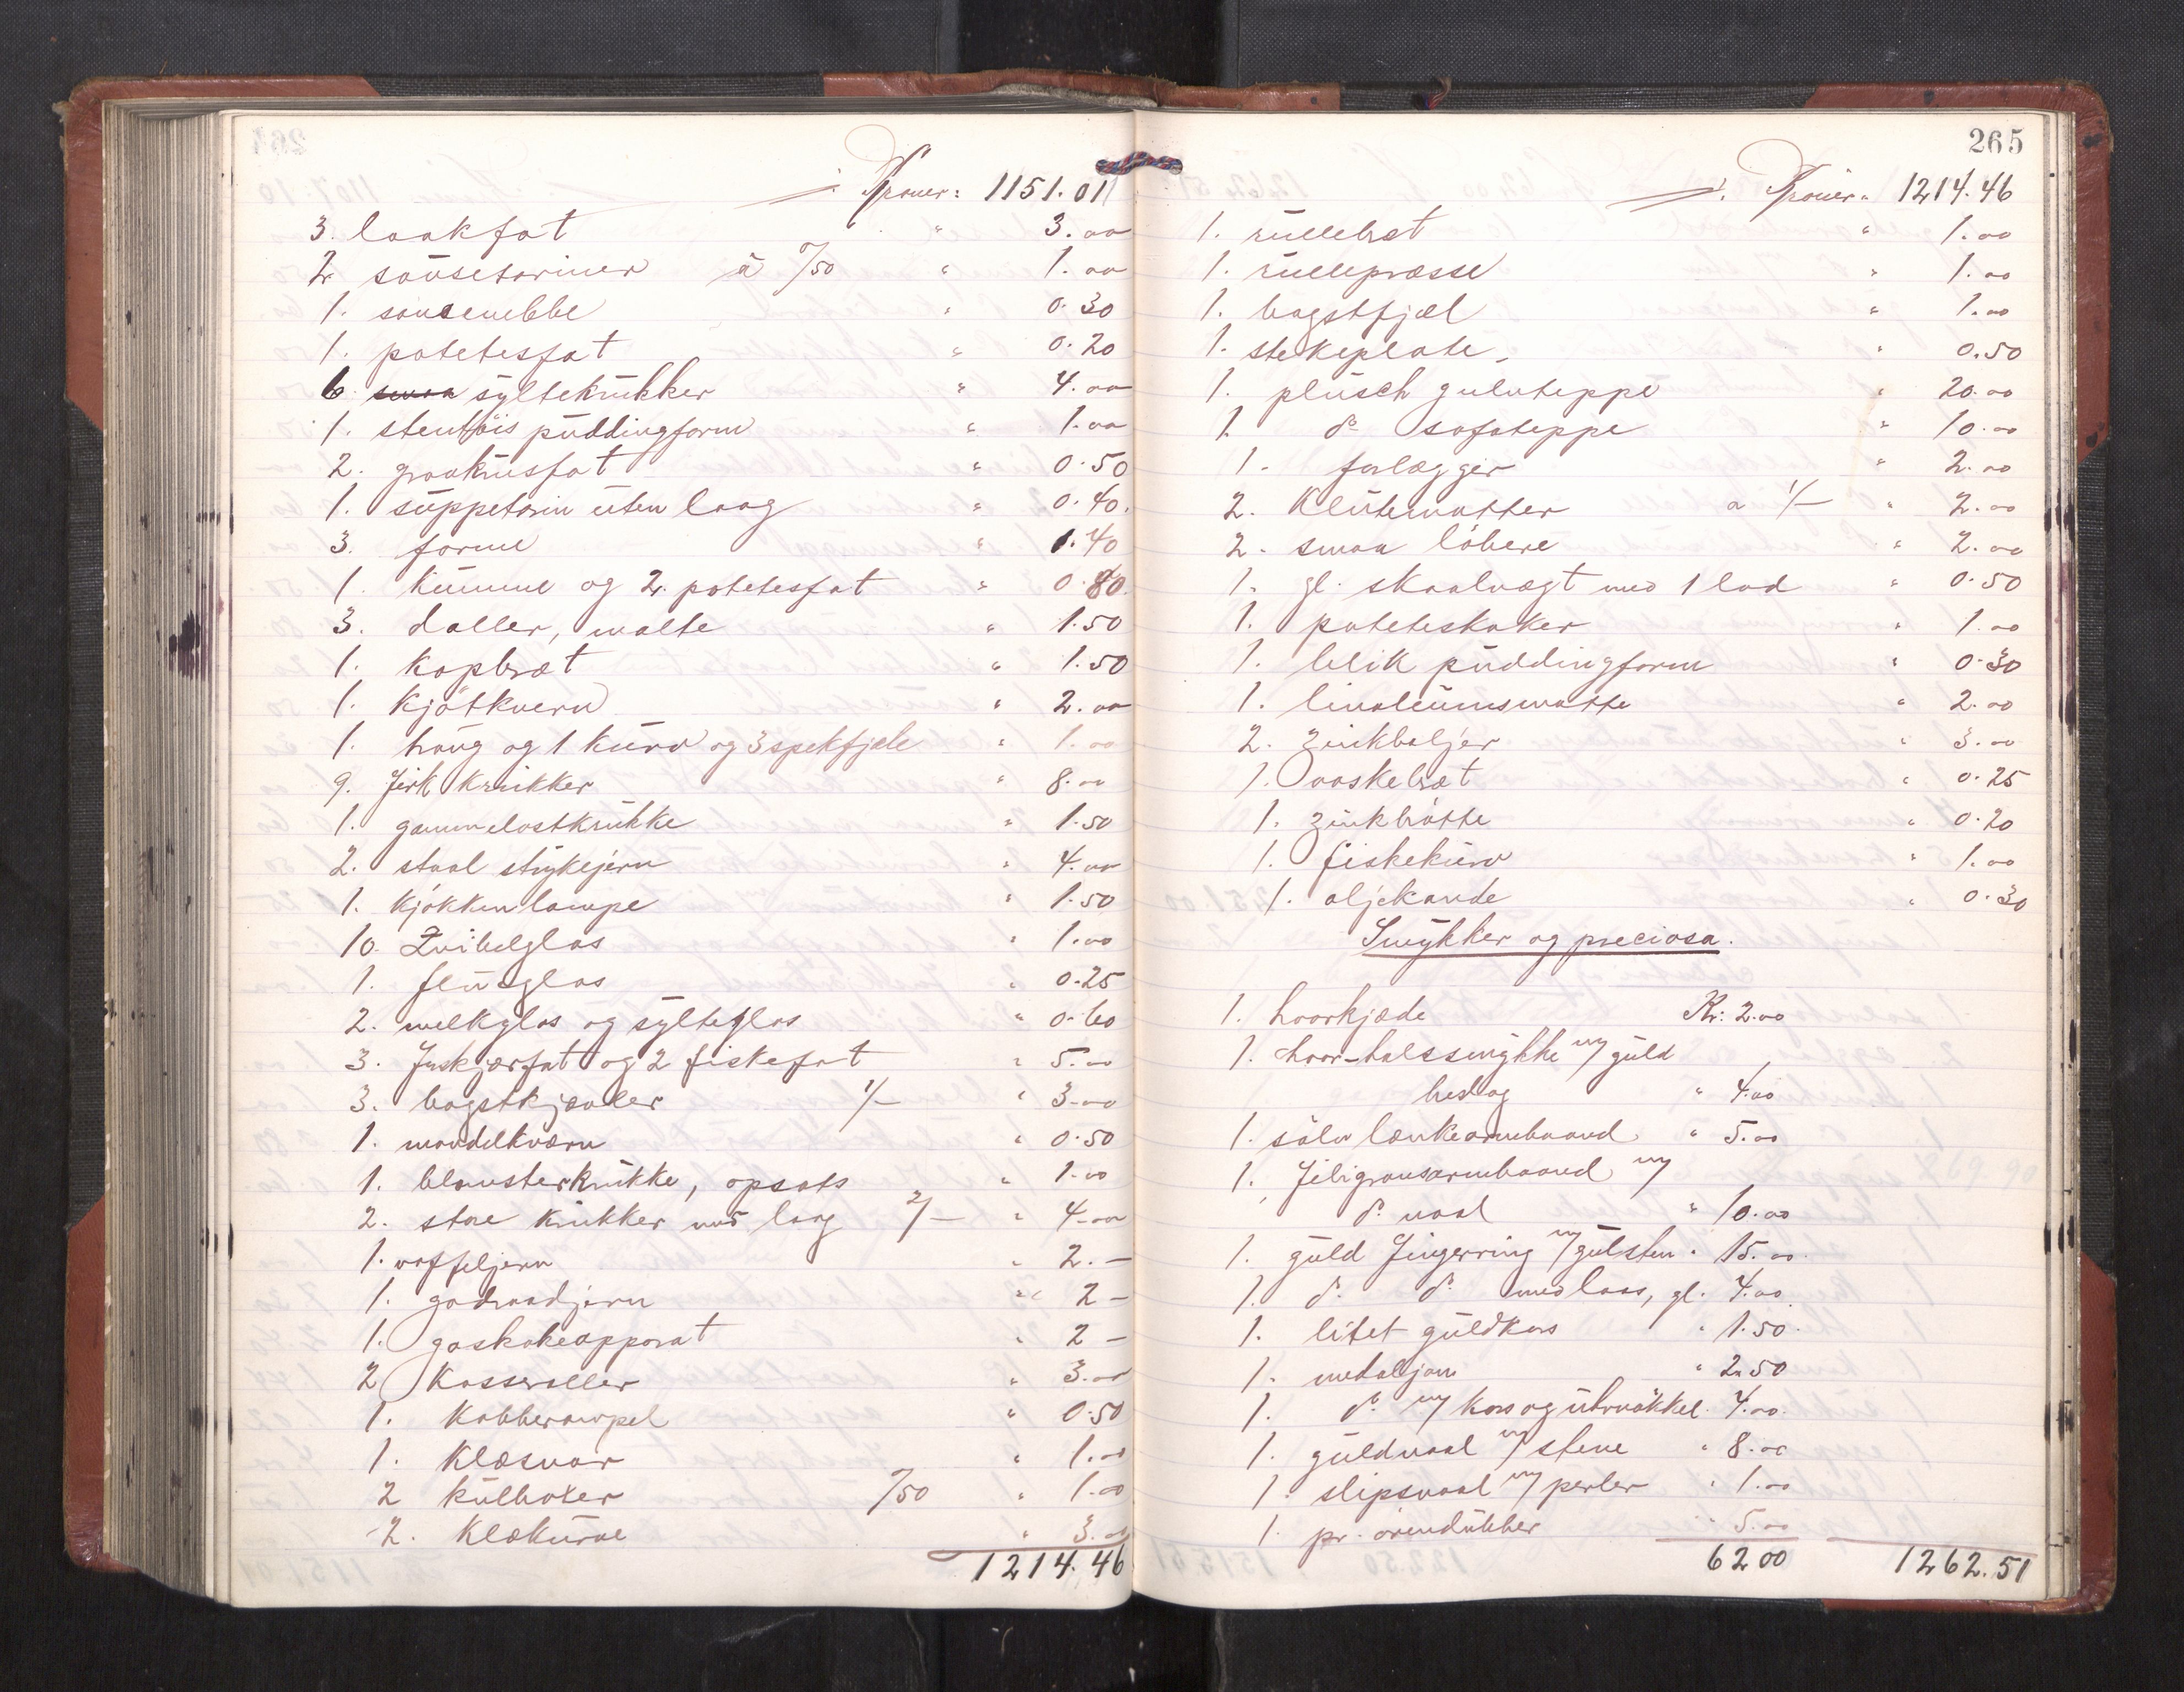 Kroner: 1151.01
3. laakfat " 3.00
2. sausetariner à 0/50 " 1.00
1. sausenebbe " 0.30
1. potetesfat " 0.20
6. smaa syltekrukker " 4.00
1. stentøis puddingform " 1.00
2. graakrusfat " 0.50
1. suppetarin uten laag " 0.40.
3. forme " 1.40
1. kumme og 2. potetesfat " 0.80.
3. daller, malte " 1.50
1. kopbræt " 1.50
1. kjøtkvern " 2.00
1. traug og 1 kurv og 3 spekfjele " 1.00
9. Jirk krukker " 8.00
1. gammelostkrukke " 1.50
2. staal strykejern " 4.00
1. kjøkkenlampe " 1.50
10. Zvibelglas " 1.00
1. flueglas " 0.25
2. melkglas og sylteglas " 0.60
3. Jnskjærfat og 2 fiskefat " 5.00
3. bagstkjævler 1/- " 3.00
1. mandelkværn " 0.50
1. blomsterkrukke, opsats " 1.00
2. store krukker med laag 2/- " 4.00
1. vaffeljern " 2.-
1. godraadjern " 2-
1. gaskokeapparat " 2-
2 Kasseroller " 3.00
1. Kobberampel " 0.50
1. Klæsnor " 1.00
2 kulbokser 0/50 " 1.00
2. Klækurve " 3.00
1214.46
265
Kroner. 1214.46
1. rullebræt " 1.00
1. rullepræsse " 1.00
1. bagstfjæl " 1.00
1. stekeplate " 0.50
1. plusch gulvteppe " 20.00
1. do sofateppe " 10.00
1. forlægger " 2.00
2. Klutematter a 1/- " 2.00
2. smaa løbere " 2.00
1. gl. skaalvægt med 1 lod " 0.50
1. poteteskoker " 1.00
1. blik puddingform " 0.30
1. linoleumsmatte " 2.00
2. zinkbaljer " 3.00
1. vaskebræt " 0.25
1. zinkbøtte " 0.20
1. fiskekurv " 1.00
1. oljekande " 0.30
Smykker og preciosa.
1. haarkjæde Kr: 2.00
1. haar-halssmykke m/ guld
beslag " 4.00
1. sølv lænkearmbaand " 5.00
1. Filigransarmbaand m/
do naal " 10.00
1. guld Fingerring m/ gul sten " 15.00
1. do do med laas, gl. 4.00
1. litet guldkors " 1.50
1. medaljon " 2.50
1. do m/ kors og urnøkkel. 4.00
1. guldnaal m/ stene " 8.00
1. slipsnaal m/ perler " 1.00
1. pr. ørendubber " 5.00
62 00 1262.51